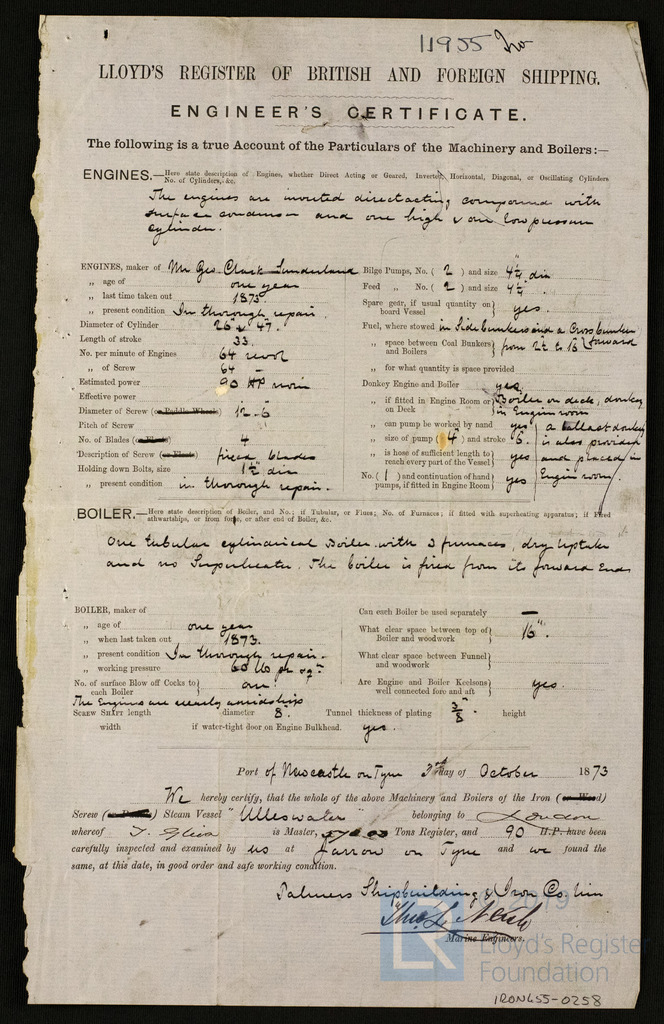 11955 Iro
LLOYD'S REGISTER OF BRITISH AND FOREIGN SHIPPING.
ENGINEER'S CERTIFICATE.
The following is a true Account of the Particulars of the Machinery and Boilers:—
ENGINES.—Here state description of Engines, whether Direct Acting or Geared, Inverted, Horizontal, Diagonal, or Oscillating Cylinders
No. of Cylinders, &c.
The engines are inverted direct acting compound with
surface condenser and one high & one low pressure
cylinder.
ENGINES, maker of Mr Geo Clark Sunderland
„ age of one year
„ last time taken out 1873
„ present condition In thorough repair.
Diameter of Cylinder 26" & 47"
Length of stroke 33
No. per minute of Engines 64 revol
„ of Screw 64
Estimated power 90 HP nom
Effective power
Diameter of Screw (or Paddle Wheels) 12-6
Pitch of Screw
No. of Blades (or Floats) 4
Description of Screw (or Floats) fixed blades
Holding down Bolts, size 1½ dia
„ present condition in thorough repair.
Bilge Pumps, No. ( 2 ) and size 4¼ dia
Feed „ No. ( 2 ) and size 4¼
Spare gear, if usual quantity on board Vessel } yes.
Fuel, where stowed in Side bunkers and a Cross bunker forward
„ space between Coal Bunkers and Boilers } from 2½ to 16
„ for what quantity is space provided
Donkey Engine and Boiler yes
„ if fitted in Engine Room or on Deck } Boiler on deck, donkey in Engine room
„ can pump be worked by hand yes
„ size of pump ( 4" ) and stroke 6.
„ is hose of sufficient length to reach every part of the Vessel } yes
No. ( 1 ) and continuation of hand pumps, if fitted in Engine Room } yes
a ballast donkey
is also provided
and placed in
Engine room.
BOILER.—Here state description of Boiler, and No.; if Tubular, or Flues; No. of Furnaces; if fitted with superheating apparatus; if Fired
athwartships, or from fore, or after end of Boiler, &c.
One tubular cylindrical Boiler with 3 furnaces, dry uptake
and no Superheater. The boiler is fired from its forward End
BOILER, maker of
„ age of one year
„ when last taken out 1873.
„ present condition In thorough repair.
„ working pressure 60 lb pr sqr
No. of surface Blow off Cocks to each Boiler } one
The Engines are nearly amidships
SCREW SHAFT length diameter 8"
width if water-tight door on Engine Bulkhead. yes.
Can each Boiler be used separately —
What clear space between top of Boiler and woodwork } 16".
What clear space between Funnel and woodwork }
Are Engine and Boiler Keelsons well connected fore and aft } yes.
Tunnel thickness of plating 3/8" height
Port of Newcastle on Tyne 3rd day of October 1873
We hereby certify, that the whole of the above Machinery and Boilers of the Iron (or Wood)
Screw (or Paddle) Steam Vessel "Ulleswater" belonging to London
whereof is Master, Tons Register, and 90 H.P. have been
carefully inspected and examined by us at Jarrow on Tyne and we found the
same, at this date, in good order and safe working condition.
Palmers Shipbuilding & Iron Co. Lim
Marine Engineers.
2019
LR
Lloyd's Register
Foundation
IRON655-0258